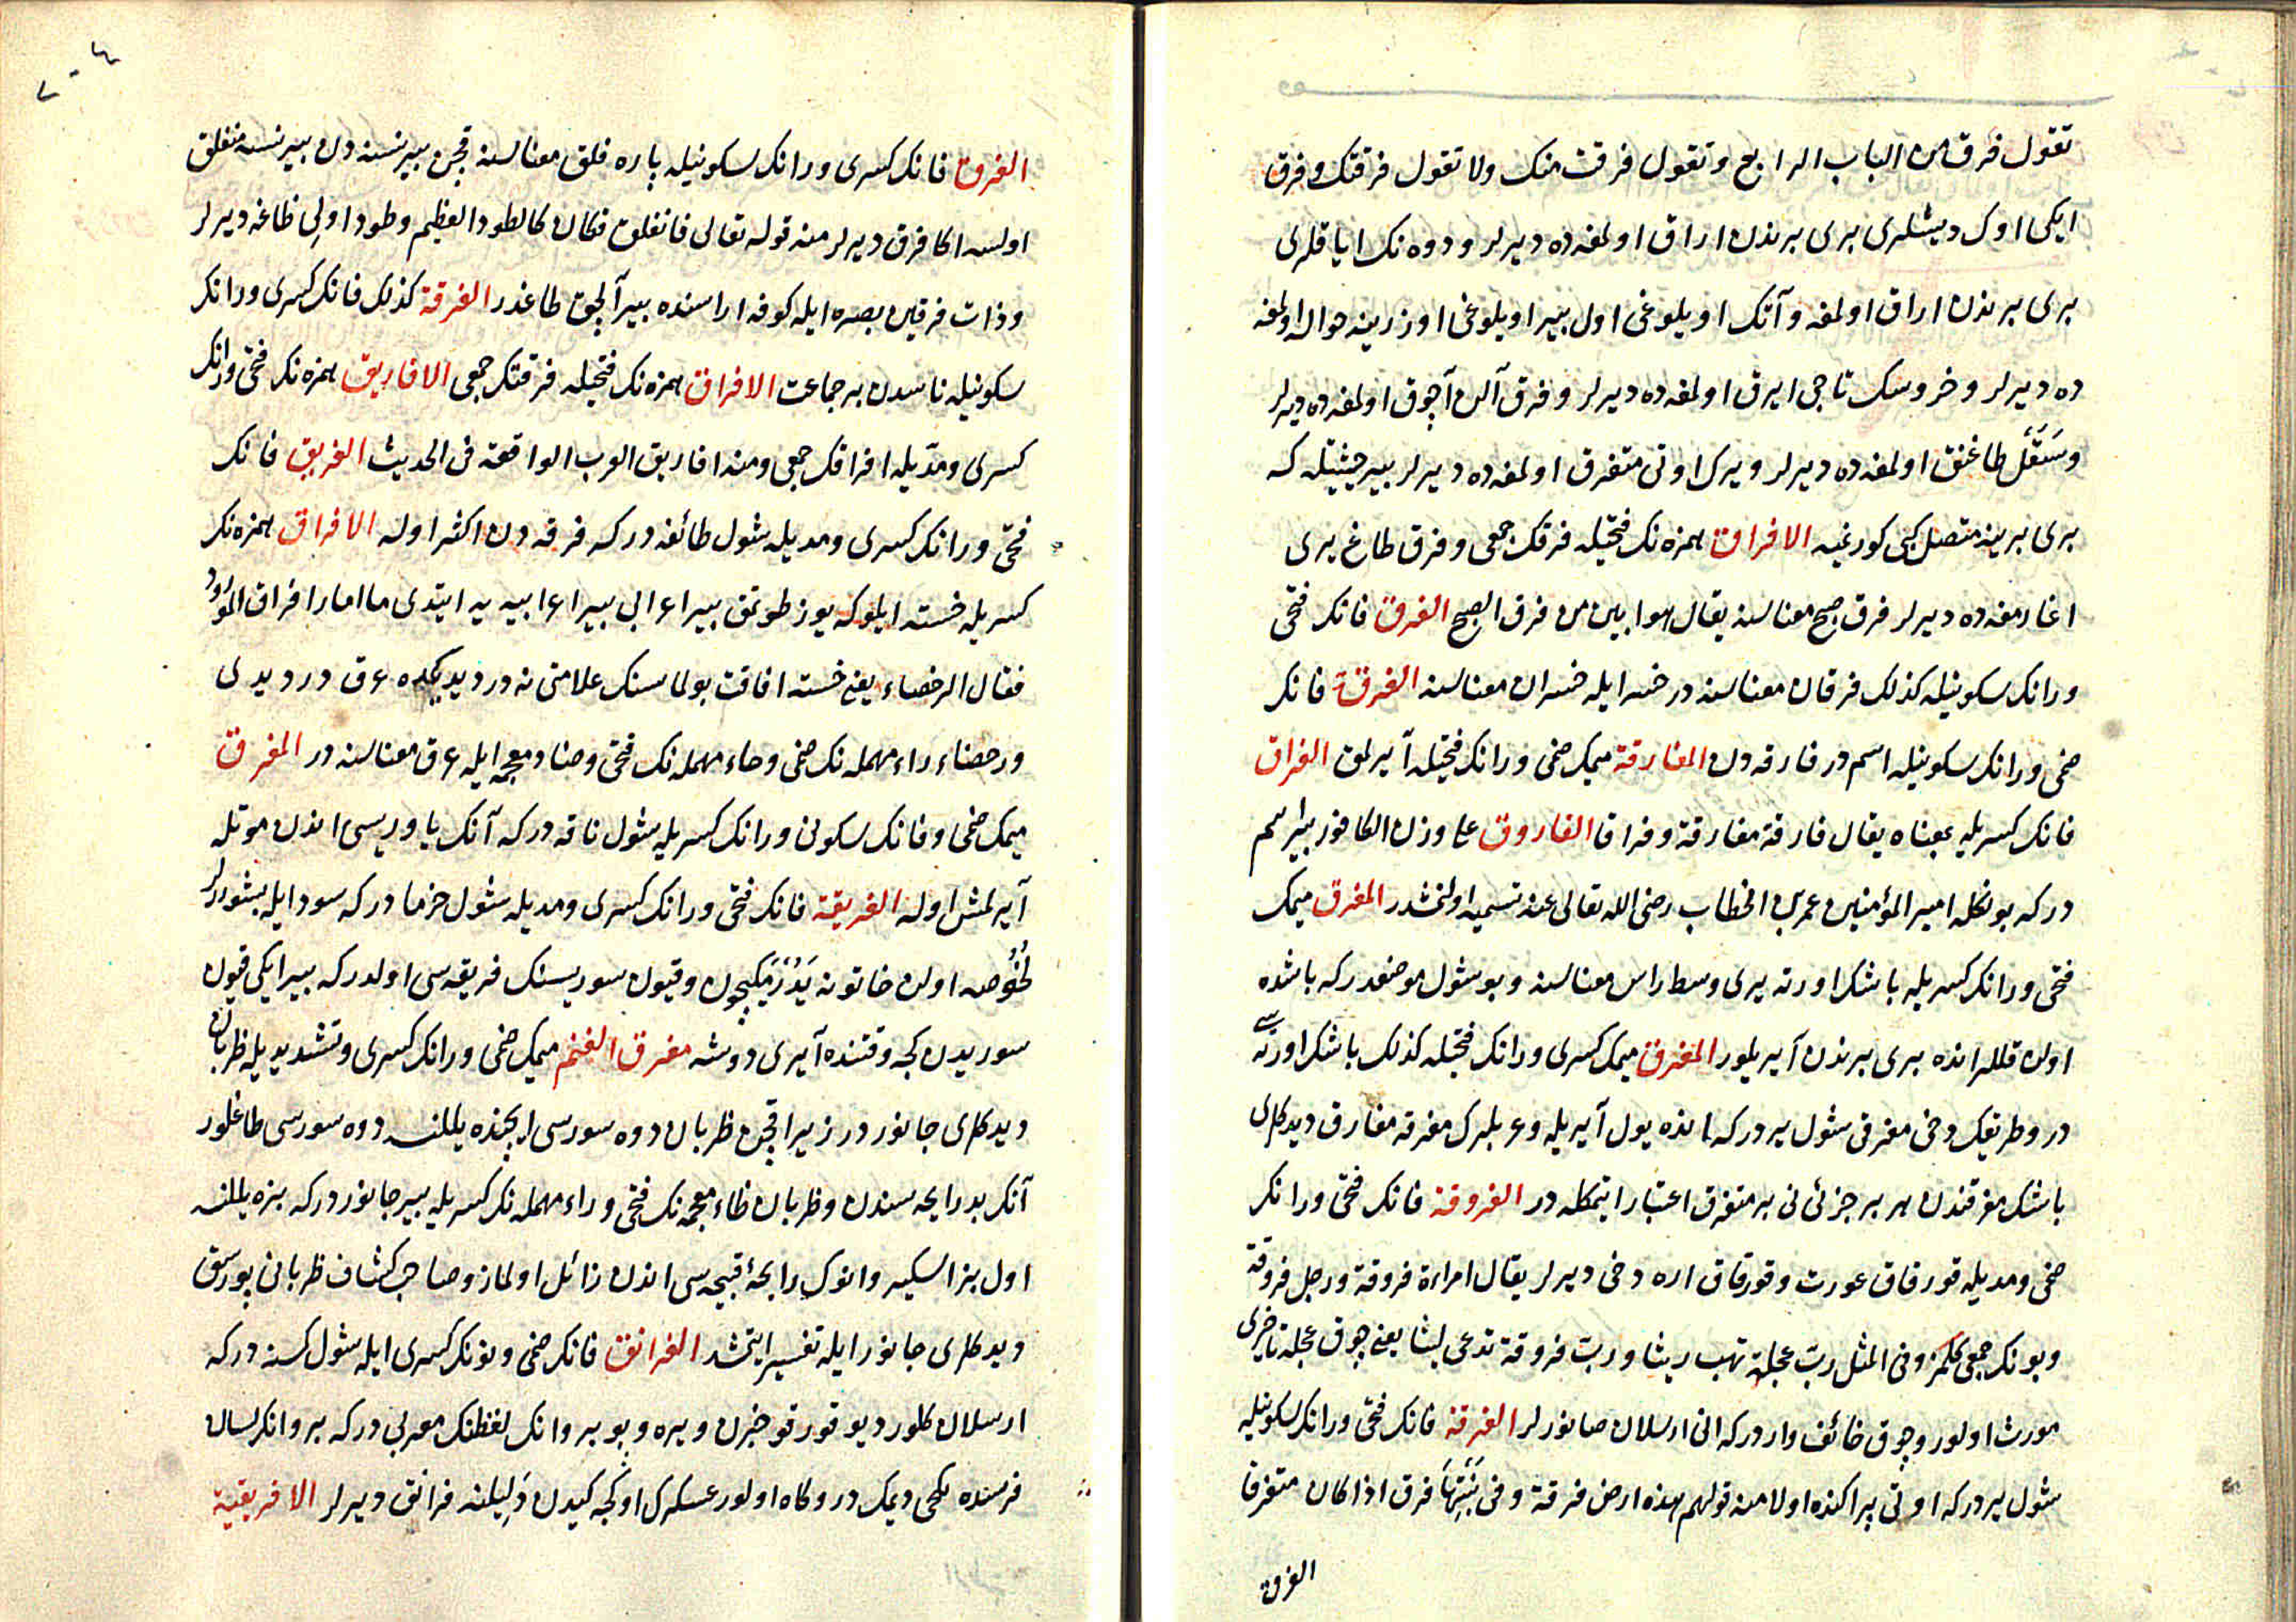 تقول فرق من الباب الرابع وتقول فرقت منك ولا تقول فرقتك وفرق
ایکی اوك دیشلری بری برندن اراق اولمغه ده دیرلر ودوه نك ایاقلری
بری برندن اراق اولمغه وآتك اویلوغی اول بیر اویلوغی اوزرینه حواله اولمغه
ده دیرلر وخروسك تاجی ایرق اولمغه ده دیرلر وفرق آلن آچوق اولمغه ده دیرلر
وسقل طاغنق اولمغه ده دیرلر ویرك اوتی متفرق اولمغه ده دیرلر بیر حیثیتله که
بری برینه متصل کبی کورنمیه الافراق همزه نك فتحیله فرقك جمعی وفرق طاغ یری
اغارمغه ده دیرلر فرق صبح معناسنه یقال هو ابین من فرق الصبح الفرق فانك فتحی
ورانك سکونیله کذلك فرقان معناسنه در خسر ایله خسران معناسنه الفرقة فانك
ضمی ورانك سکونیله اسم در فارقه دن المفارقة میمك ضمی ورانك فتحیله آیرلمق الفراق
فانك کسریله بمعناه یقال فارقه مفارقة وفراقا الفاروق علی وزن الکافور بیر اسم
درکه بونکله امیر المؤمنین عمر بن الخطاب رضی الله تعالی عنه تسمیه اولنمشدر المفرق میمك
فتحی ورانك کسریله باشك اورته یری وسط راس معناسنه وبو شول موضعدرکه باشده
اولن قللر انده بری برندن آیریلور المفرق میمك کسری ورانك فتحیله کذلك باشك اورته سی
در وطریقك دخی مفرقی شول یردرکه انده یول آیریله وعربلرك مفرقه مفارق دیدکلری
باشك مفرقندن هر بر جزئی نی بر متفرق اعتبار ایتمکله در الفروقة فانك فتحی ورانك
ضمی ومدیله قورقاق عورت وقورقاق اره دخی دیرلر یقال امراءة فروقة ورجل فروقة
وبونك جمعی کلمز وفی المثل رب عجلة تهب ریثا ورب فروقة تدعی لیثا یعنی چوق عجله تاخیری
مورث اولور وچوق خائف واردرکه انی ارسلان صانورلر الفرقة فانك فتحی ورانك سکونیله
شول یردرکه اوتی پراکنده اولا منه قولهم هذه ارض فرقة وفی نبتها فرق اذا کان متفرقا
الفرق
الفرق فانك کسری ورانك سکونیله پاره فلق معناسنه قچن بیر نسنه دن بیر نسنه منفلق
اولسه اکا فرق دیرلر منه قوله تعالی فانفلق فکان کالطود العظیم وطود اولی طاغه دیرلر
وذات فرقین بصره ایله کوفه اراسنده بیر آلچق طاغدر الفرقة کذلك فانك کسری ورانك
سکونیله ناسدن بر جماعت الافراق همزه نك فتحیله فرقتك جمعی الافاریق همزه نك فتحی ورانك
کسری ومدیله افراقك جمعی ومنه افاریق العرب الواقعة فی الحدیث الفریق فانك
فتحی ورانك کسری ومدیله شول طائفه درکه فرقه دن اکثر اوله الافراق همزه نك
کسریله خسته ایلوکه یوز طوتمق بیر اعرابی بیر اعرابیه یه ایتدی ما امارا افراق المورود
فقال الرحضاء یعنی خسته افاقت بولماسنك علامتی نه در دیدیکده عرق در دیدی
ورحضاء راء مهمله نك ضمی وحاء مهمله نك فتحی وضاد معجمه ایله عرق معناسنه در المفرق
میمك ضمی وفانك سکونی ورانك کسریله شول ناقه درکه آنك یاوریسی اندن موتله
آیرلمش اوله الفریقة فانك فتحی ورانك کسری ومدیله شول خرما درکه سود ایله بشوررلر
لخوصه اولن خاتونه یدرمکیچون وقیون سوریسنك فریقه سی اولدرکه بیر ایکی قیون
سوریدن کجه وقتنده آیری دوشه مفرق الغنم میمك ضمی ورانك کسری وتشدیدیله ظربان
دیدکلری جانوردر زیرا قچن ظربان دوه سورسی ایچنده یللنسه دوه سورسی طاغلور
آنك بد رایحه سندن وظربان ظاء معجمه نك فتحی وراء مهمله نك کسریله بیر جانوردرکه بزه یللنسه
اول بز اسکیر وانوك رایحۀ قبیحه سی اندن زائل اولماز وصاحب کشاف ظربانی پورسق
دیدکلری جانور ایله تفسیر ایتمشدر الفرانق فانك ضمی ونونك کسری ایله شول کسنه درکه
ارسلان کلور دیو قورقو خبرن ویره وبو پروانك لفظنك معربی درکه پروانك لسان
فرسنده یکچی دیمك در وکاه اولور عسکرك اوکجه کیدن دلیلنه فرانق دیرلر الافریقیة